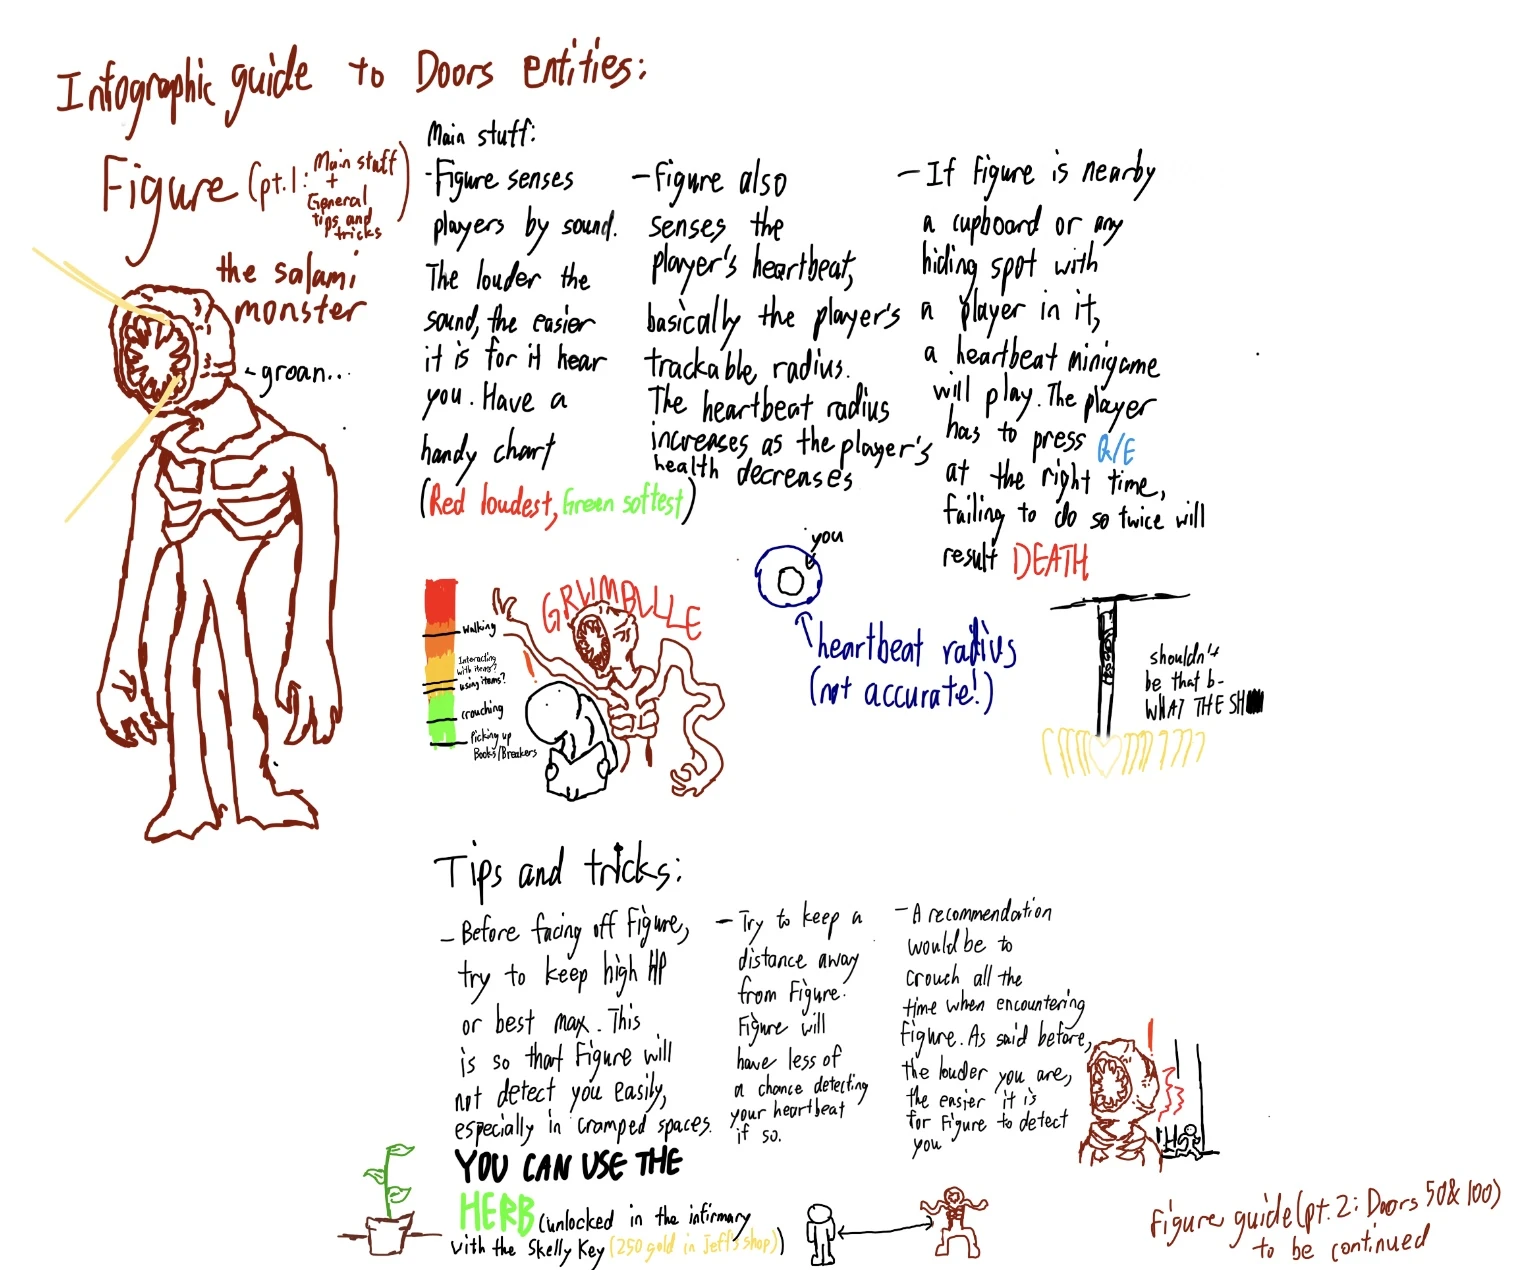 Infographic guide to Doors entities:
Figure (pt.1: Main stuff
+
General
tips and
tricks)
the salami
monster
-groan...
Main stuff:
- Figure senses
players by sound.
The louder the
sound, the easier
it is for it hear
you. Have a
handy chart
(Red loudest, Green softest)
- Figure also
senses the
player's heartbeat,
basically the player's
trackable radius.
The heartbeat radius
increases as the player's
health decreases
- If Figure is nearby
a cupboard or any
hiding spot with
a player in it,
a heartbeat minigame
will play. The player
has to press Q/E
at the right time,
failing to do so twice will
result DEATH
Walking
Interacting
with items?
using items?
crouching
Picking up
Books/Breakers
GRUMBLLLE
!
you
heartbeat radius
(not accurate!)
shouldn't
be that b-
WHAT THE SH
Tips and tricks:
- Before facing off Figure,
try to keep high HP
or best max. This
is so that Figure will
not detect you easily,
especially in cramped spaces.
YOU CAN USE THE
HERB (unlocked in the infirmary
with the Skelly Key (250 gold in Jeff's shop))
- Try to keep a
distance away
from Figure.
Figure will
have less of
a chance detecting
your heartbeat
if so.
- A recommendation
would be to
crouch all the
time when encountering
Figure. As said before,
the louder you are,
the easier it is
for Figure to detect
you
!
Figure guide (pt. 2: Doors 50 & 100)
to be continued